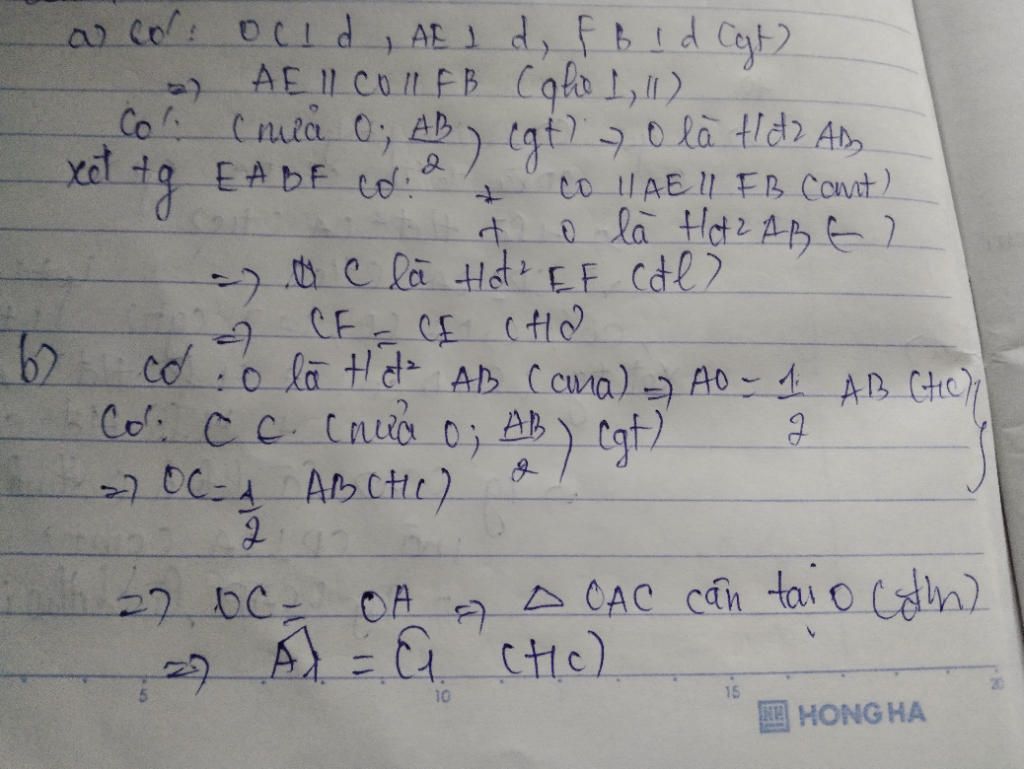 a) Có: OC ⊥ d, AE ⊥ d, FB ⊥ d (gt)
=> AE // CO // FB (qhe ⊥, //)
Có: (nửa O; AB/2) (gt) → O là tđ² AB
xét tg EABF có: + CO // AE // FB (cmt)
+ O là tđ² AB (-)
=> C là tđ² EF (đl)
=> CF = CE (tc)
b) Có: O là tđ² AB (cma) => AO = 1/2 AB (tc)
Có: C ∈ (nửa O; AB/2) (gt)
=> OC = 1/2 AB (tc)
=> OC = OA => △ OAC cân tại O (đhn)
=> Â1 = Ĉ1 (tc)
5 10 15 20
HONG HA